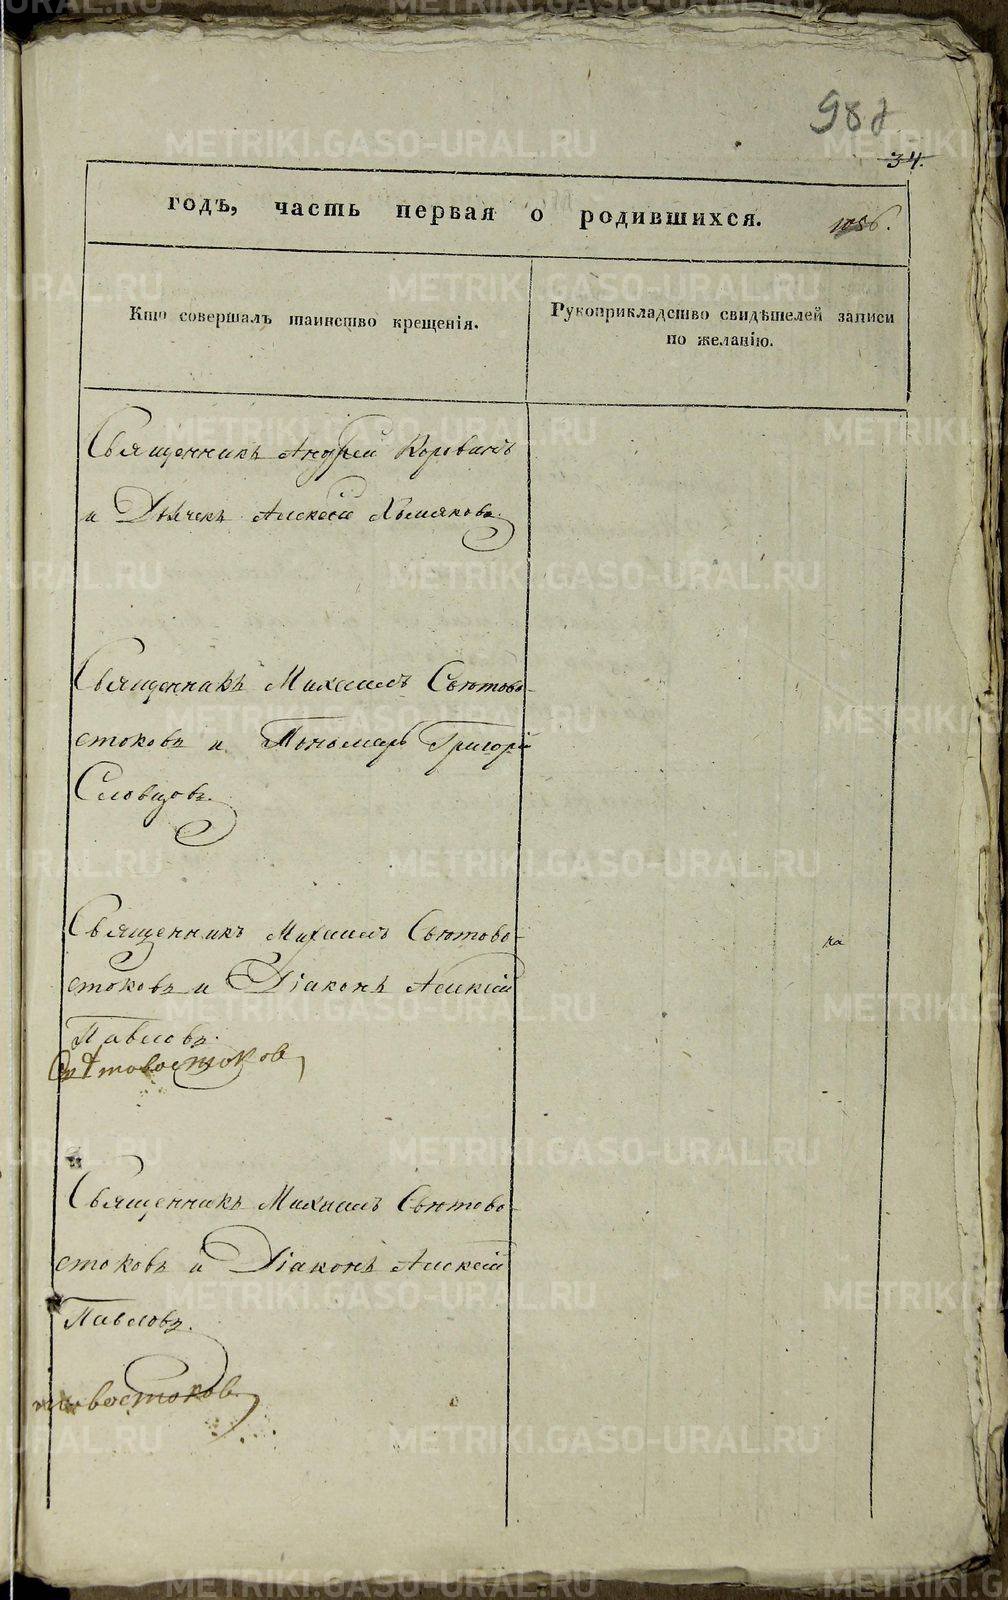 982
34.
годъ, часть первая о родившихся.
Кто совершалъ таинство крещенія.
Рукоприкладство свидѣтелей записи
по желанію.
Священникъ Андрей Коровинъ
и Дьячекъ Алексѣй Хомяковъ.
Священникъ Михаилъ Свѣтово-
стоковъ и Пономарь Григорій
Словцовъ.
Священникъ Михаилъ Свѣтово-
стоковъ и Діаконъ Алексій
Павловъ.
Свѣтовостоков
на
Священникъ Михаилъ Свѣтово-
стоковъ и Діаконъ Алексій
Павловъ.
товостоков
METRIKI.GASO-URAL.RU